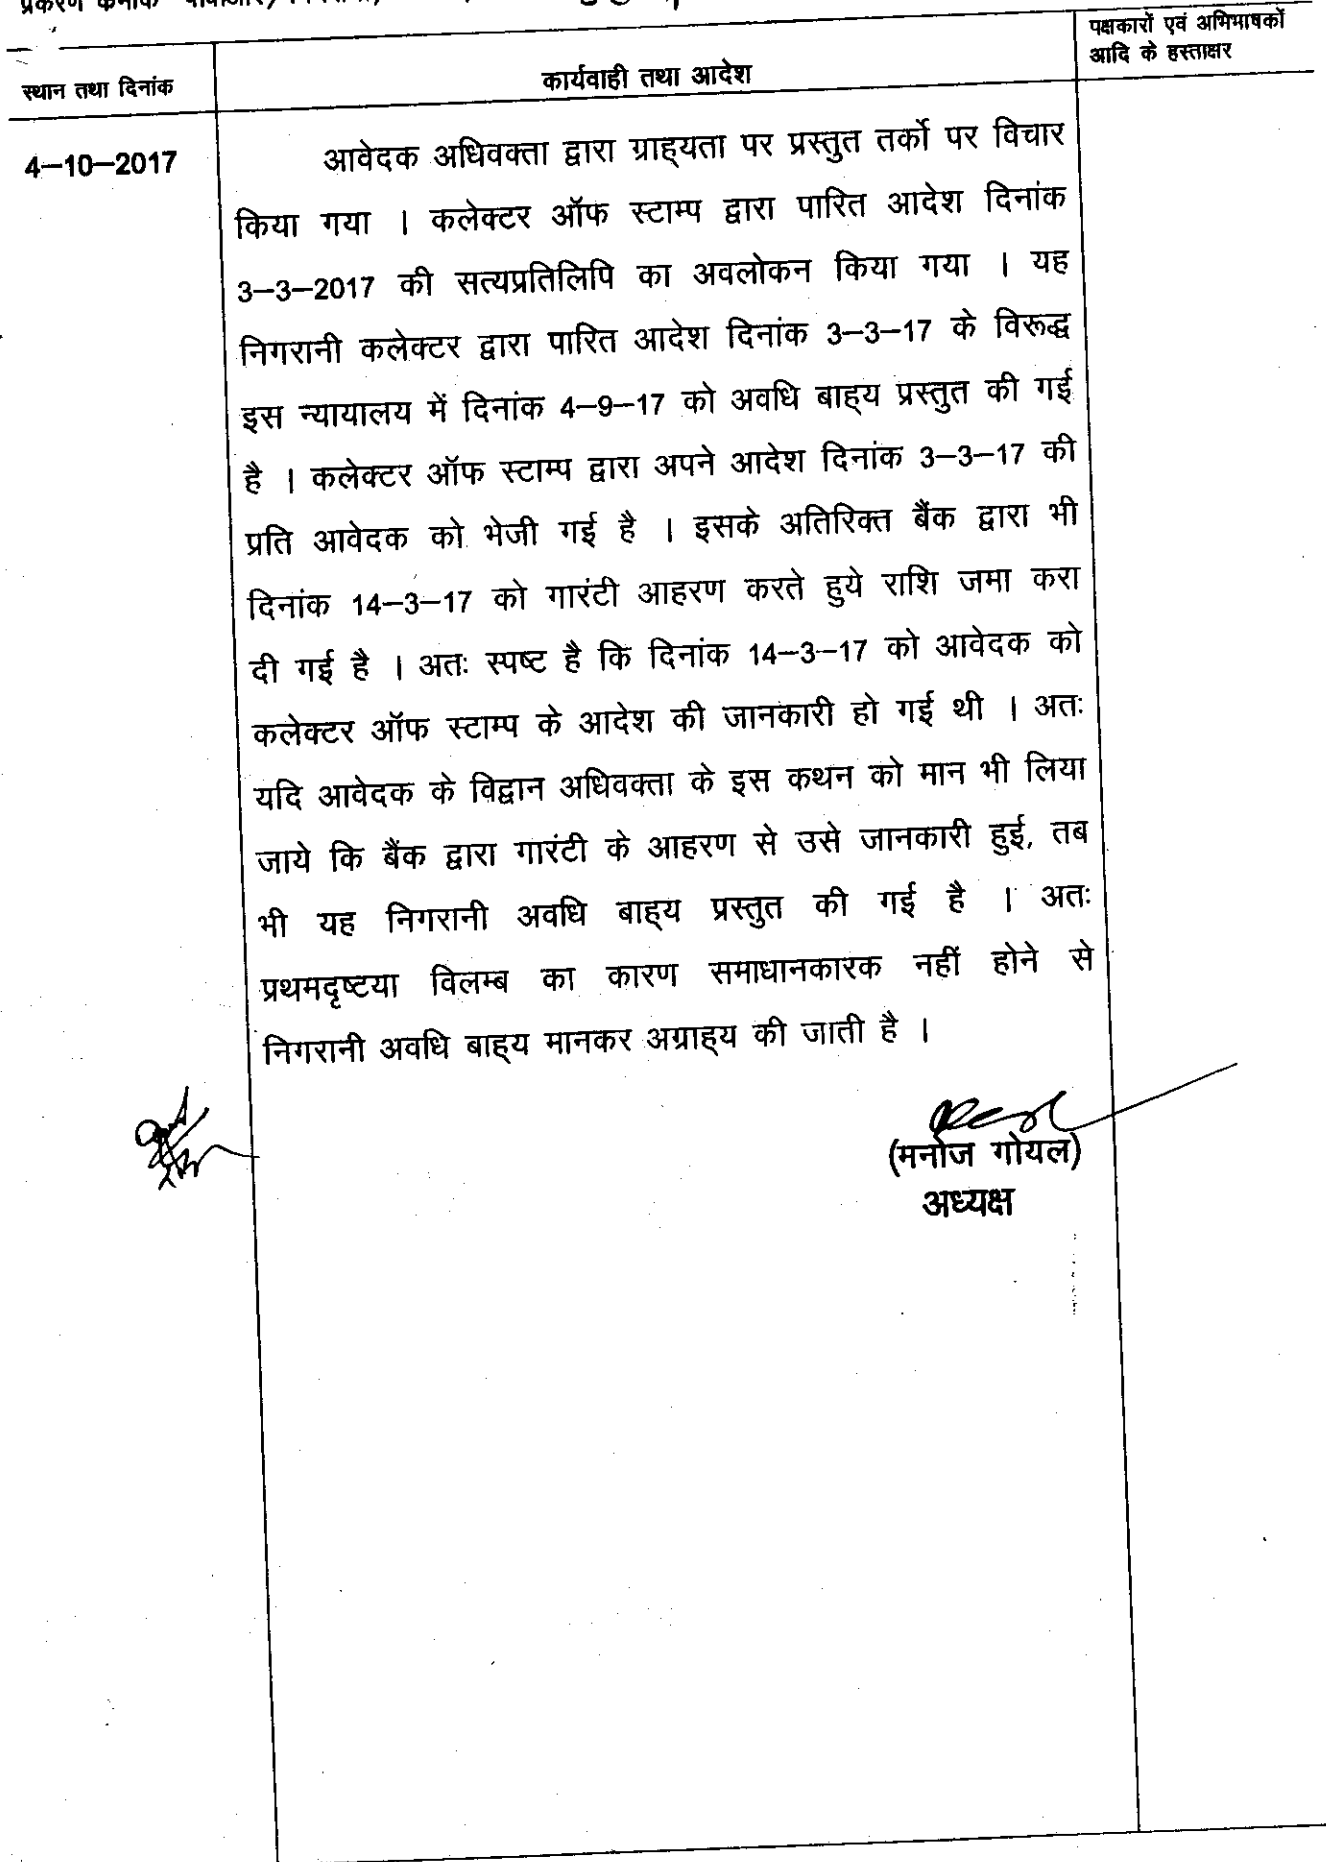 प्रकरण क्रमांक
पक्षकारों एवं अभिभाषकों
आदि के हस्ताक्षर
स्थान तथा दिनांक
कार्यवाही तथा आदेश
4–10–2017
आवेदक अधिवक्ता द्वारा ग्राह्यता पर प्रस्तुत तर्को पर विचार
किया गया । कलेक्टर ऑफ स्टाम्प द्वारा पारित आदेश दिनांक
3–3–2017 की सत्यप्रतिलिपि का अवलोकन किया गया । यह
निगरानी कलेक्टर द्वारा पारित आदेश दिनांक 3–3–17 के विरूद्ध
इस न्यायालय में दिनांक 4–9–17 को अवधि बाह्य प्रस्तुत की गई
है । कलेक्टर ऑफ स्टाम्प द्वारा अपने आदेश दिनांक 3–3–17 की
प्रति आवेदक को भेजी गई है । इसके अतिरिक्त बैंक द्वारा भी
दिनांक 14–3–17 को गारंटी आहरण करते हुये राशि जमा करा
दी गई है । अतः स्पष्ट है कि दिनांक 14–3–17 को आवेदक को
कलेक्टर ऑफ स्टाम्प के आदेश की जानकारी हो गई थी । अतः
यदि आवेदक के विद्वान अधिवक्ता के इस कथन को मान भी लिया
जाये कि बैंक द्वारा गारंटी के आहरण से उसे जानकारी हुई, तब
भी यह निगरानी अवधि बाह्य प्रस्तुत की गई है । अतः
प्रथमदृष्टया विलम्ब का कारण समाधानकारक नहीं होने से
निगरानी अवधि बाह्य मानकर अग्राह्य की जाती है ।
(मनोज गोयल)
अध्यक्ष